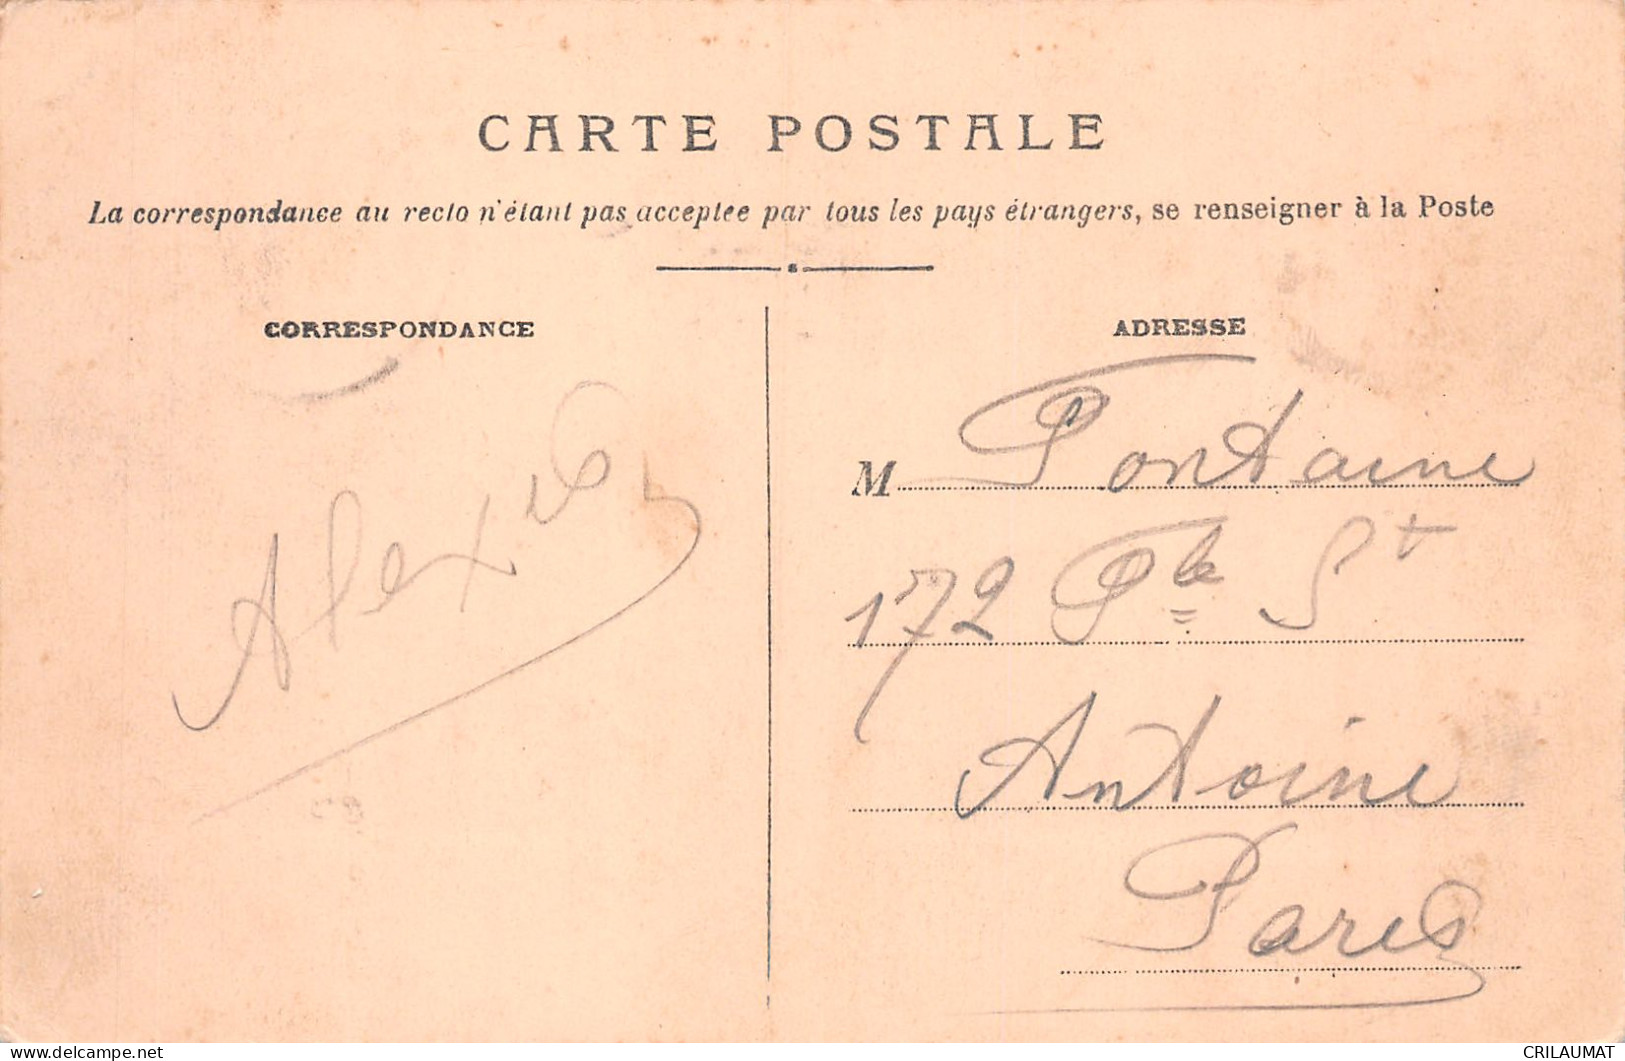 CARTE POSTALE
La correspondance au recto n'étant pas acceptée par tous les pays étrangers, se renseigner à la Poste
CORRESPONDANCE
ADRESSE
M Fontaine
172 Fb St
Antoine
Paris
delcampe.net
CRILAUMAT